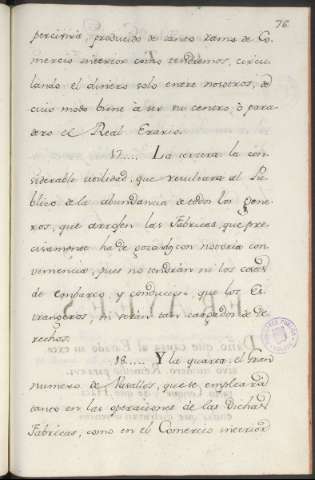 76
percivira producido de tanto ramo de Co-
mercio interior como tendremos, circu-
lando el dinero solo entre nosotros, de
cuio modo viene à ser su centro, ò para-
dero el Real Erario.
17.... La tercera la con-
siderable utilidad, que resultara al Pu-
blico de la abundancia de todos los gene-
ros, que arrojen las Fabricas, que pre-
cisamente ha de gozar con notoria con-
veniencia, pues no tendràn ni los costos
de embarco, y conducion que los Es-
trangeros, ni seràn tan cargados de De-
rechos.
18..... Y la quarta, el gran
numero de Vasallos, que se emplearà
tanto en las operaciones de las Dichas
Fabricas, como en el Comercio interior